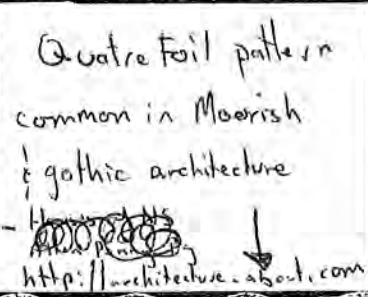 Quatre Foil pattern
common in Moorish
& gothic architecture
http://architecture.about.com